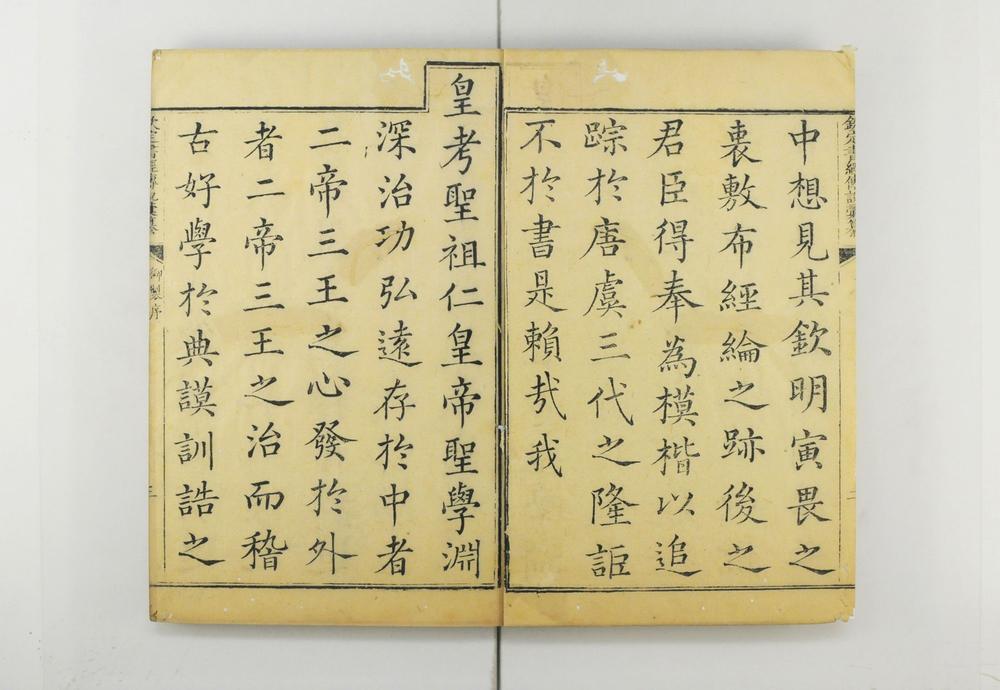 欽定書經傳說彙纂
中想見其欽明寅畏之
裏敷布經綸之跡後之
君臣得奉為模楷以追
踪於唐虞三代之隆詎
不於書是賴哉我
二
皇考聖祖仁皇帝聖學淵
深治功弘遠存於中者
二帝三王之心發於外
者二帝三王之治而稽
古好學於典謨訓誥之
欽定書經傳說彙纂
御製序
三